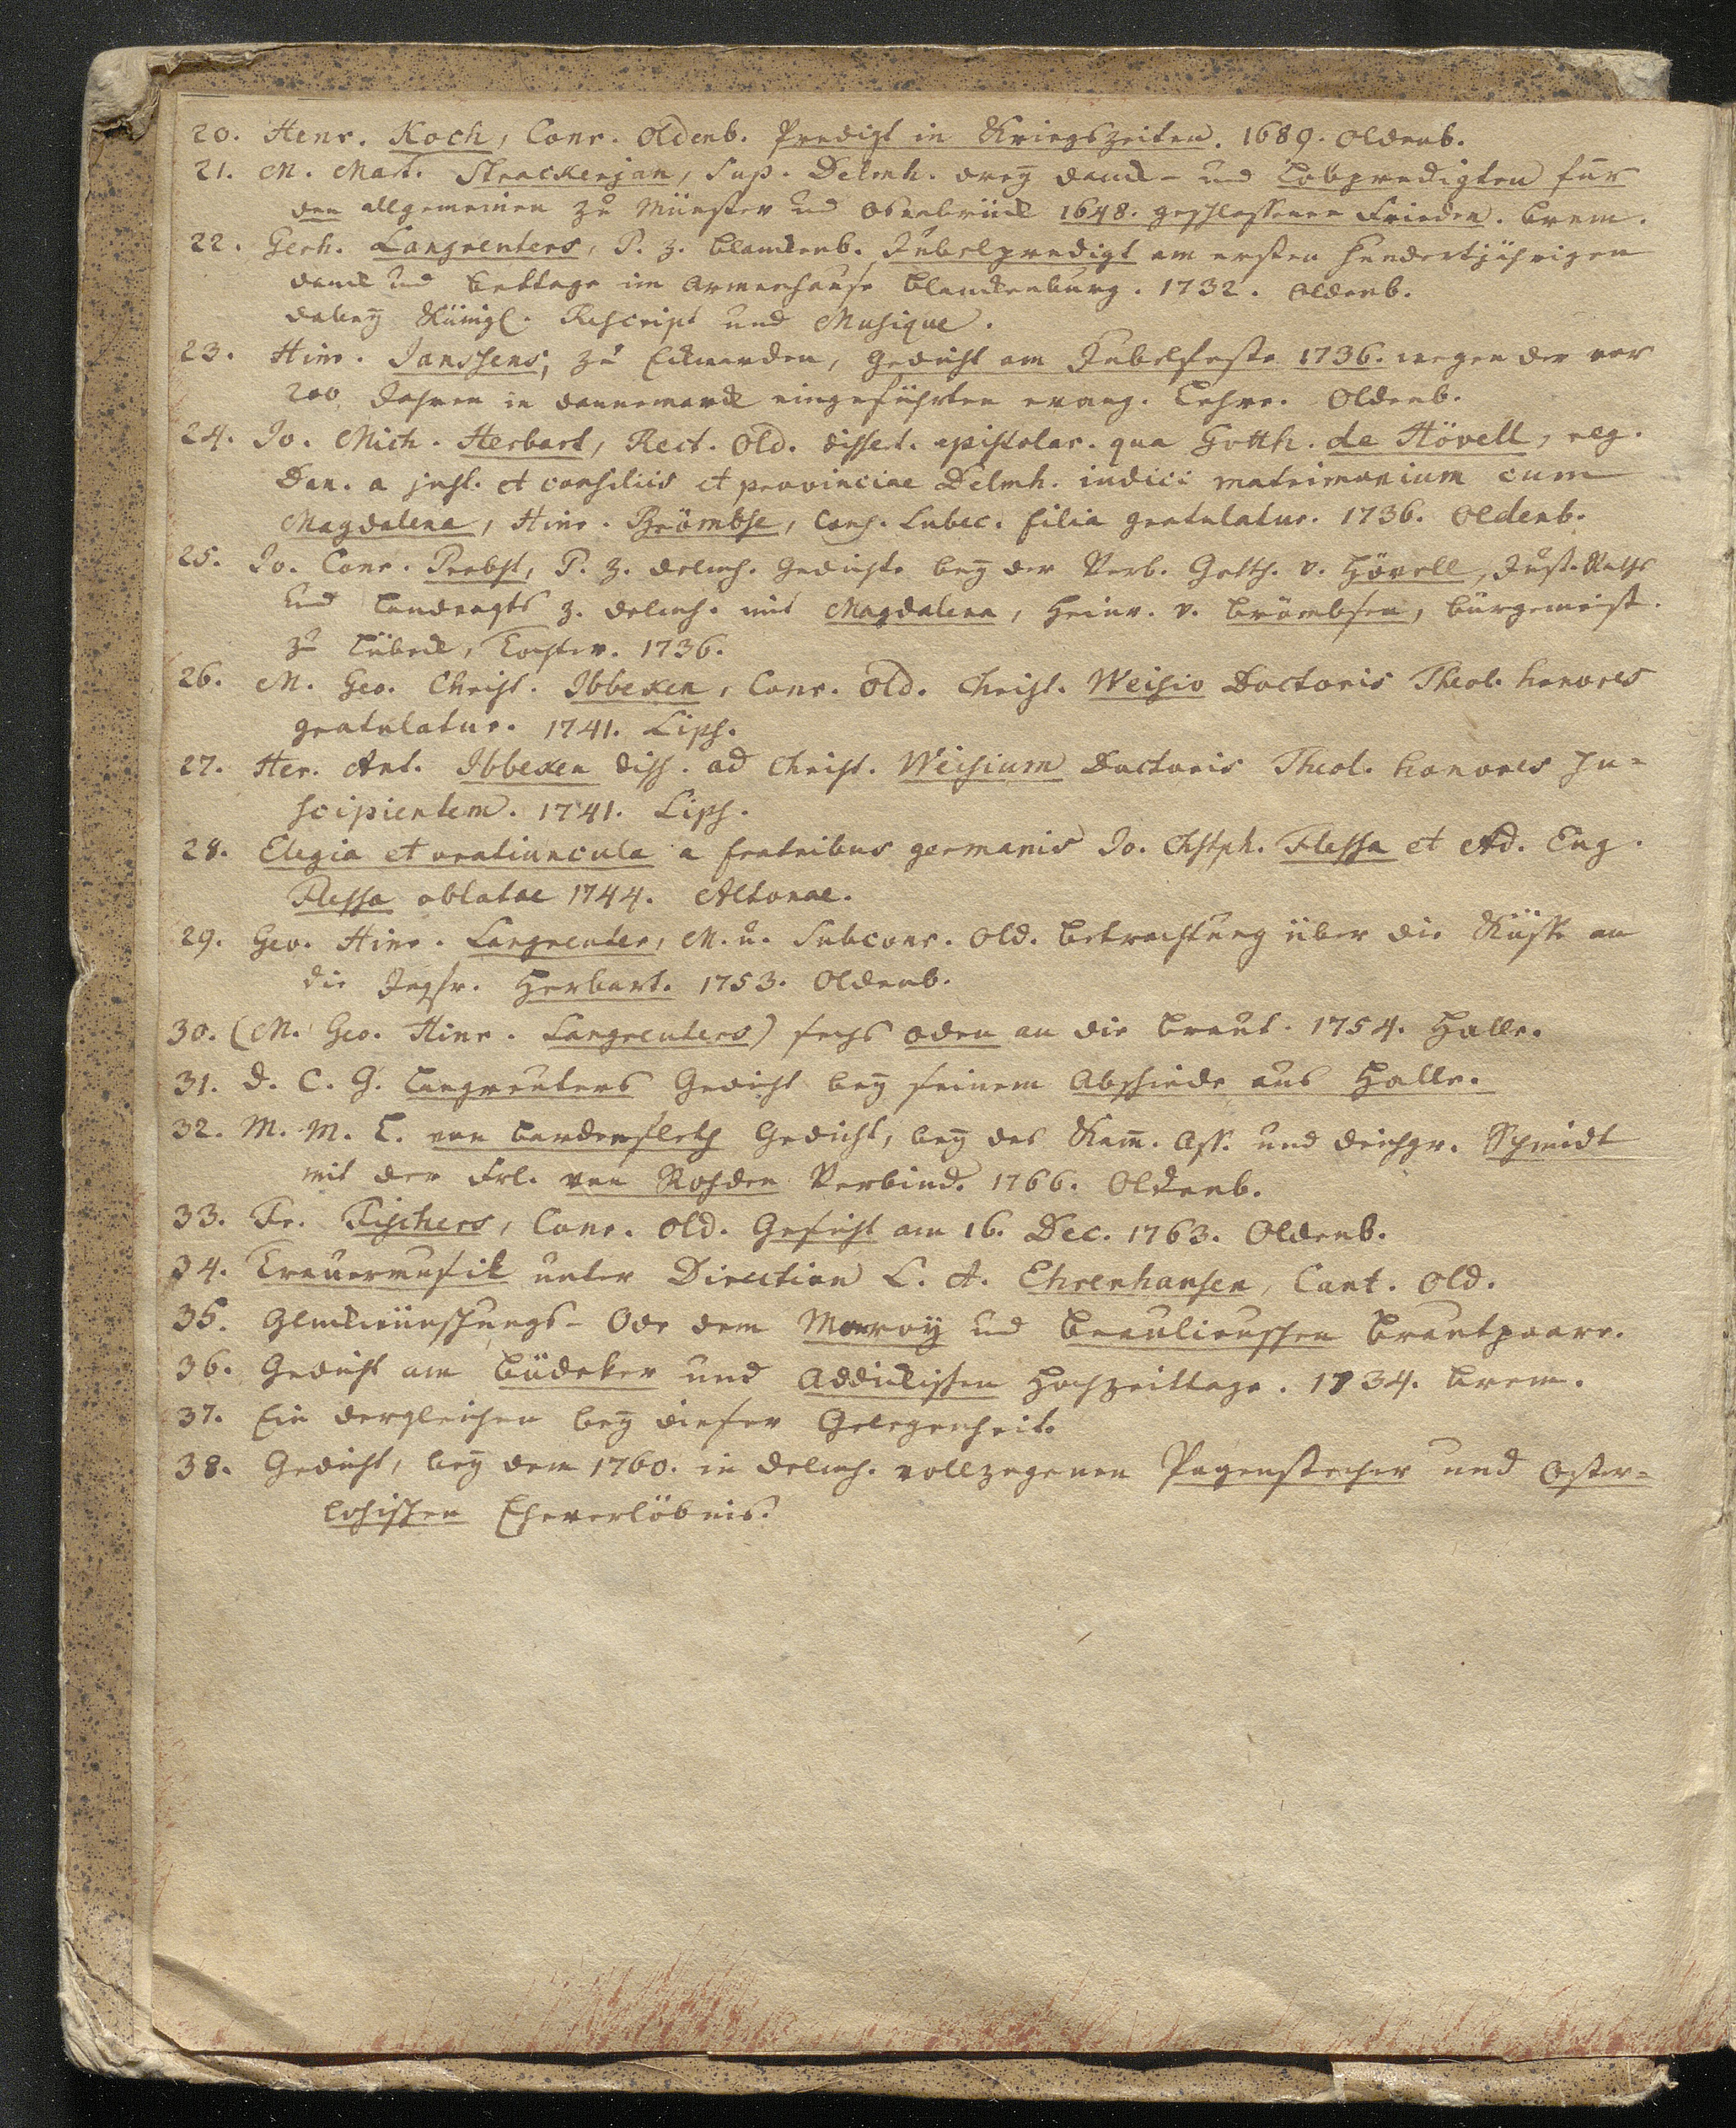 20. Henr. Koch, Conr. Oldenb. Predigt in Kriegszeiten. 1689. Oldenb.
21. M. Mart. Strackerjan, Sup. Delmh. drey Danck- und Lobpredigten für
den allgemeinen zu Münster und Osnabrück 1648. geschlossenen Frieden. Brem.
22. Gerh. Langreuters, P. z. Blanckenb. Jubelpredigt am ersten hundertjährigen
Danck und Bettage im Armenhause Blanckenburg. 1732. Oldenb.
dabey Königl. Rescript und Musique.
23. Hinr. Janssens, zu Eckwarden, Gedicht am Jubelfeste 1736. wegen der vor
200 Jahren in Dannemarck eingeführten evang. Lehre. Oldenb.
24. Jo. Mich. Herbart, Rect. Old. dissert. epistolar. qua Gotth. de Hövell, reg.
Dan. a just. et consiliis et provinciae Delmh. iudici matrimonium cum
Magdalena, Hinr. Brömbse, Cons. Lubec. filia gratulatur. 1736. Oldenb.
25. Jo. Conr. Probst, P. z. Delmh. Gedichte bey der Verb. Gotth. v. Hövell, Just. Raths
und Landvogts z. Delmh. mit Magdalena, Heinr. v. Brömbsen, Bürgemeist.
zu Lübeck, Tochter. 1736.
26. M. Geo. Christ. Ibbeken, Conr. Old. Christ. Weisio Doctoris Theol. honores
gratulatur. 1741. Lips.
27. Her. Ant. Ibbeken diss. ad Christ. Weisium Doctoris Theol. honores su-
scipientem. 1741. Lips.
28. Elegia et oratiuncula a fratribus germanis Jo. Chstph. Flessa et Ad. Eug.
Flessa oblatae 1744. Altonae.
29. Geo. Hinr. Langreuter, M. u. Subconr. Old. Betrachtung über die Küsse an
die Jngfr. Herbart. 1753. Oldenb.
30. (M. Geo. Hinr. Langreuters) sechs Oden an die Braut. 1754. Halle.
31. D. C. G. Langreuters Gedicht bey seinem Abschiede aus Halle.
32. M. M. L. von Bardenfleth Gedicht, bey des Kam. Ass. und Deichgr. Schmidt
mit der Frl. von Rohden Verbind. 1766. Oldenb.
33. Fr. Fischers, Conr. Old. Gesicht am 16. Dec. 1763. Oldenb.
34. Trauermusik unter Direction L. A. Ehrenhausen, Cant. Old.
35. Glückwünschungs-Ode dem Monroy und Beaulieuschen Brautpaare.
36. Gedicht am Büdeker und Addickissen Hochzeittage. 1734. Brem.
37. Ein dergleichen bey dieser Gelegenheit.
38. Gedicht, bey dem 1760. in Delmh. vollzogenen Pagenstecher und Oster-
lohischen Eheverlöbnis.